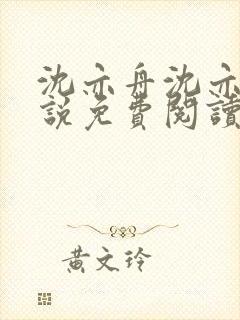 沈亦舟沈亦
說免費閱讀
黃文玲